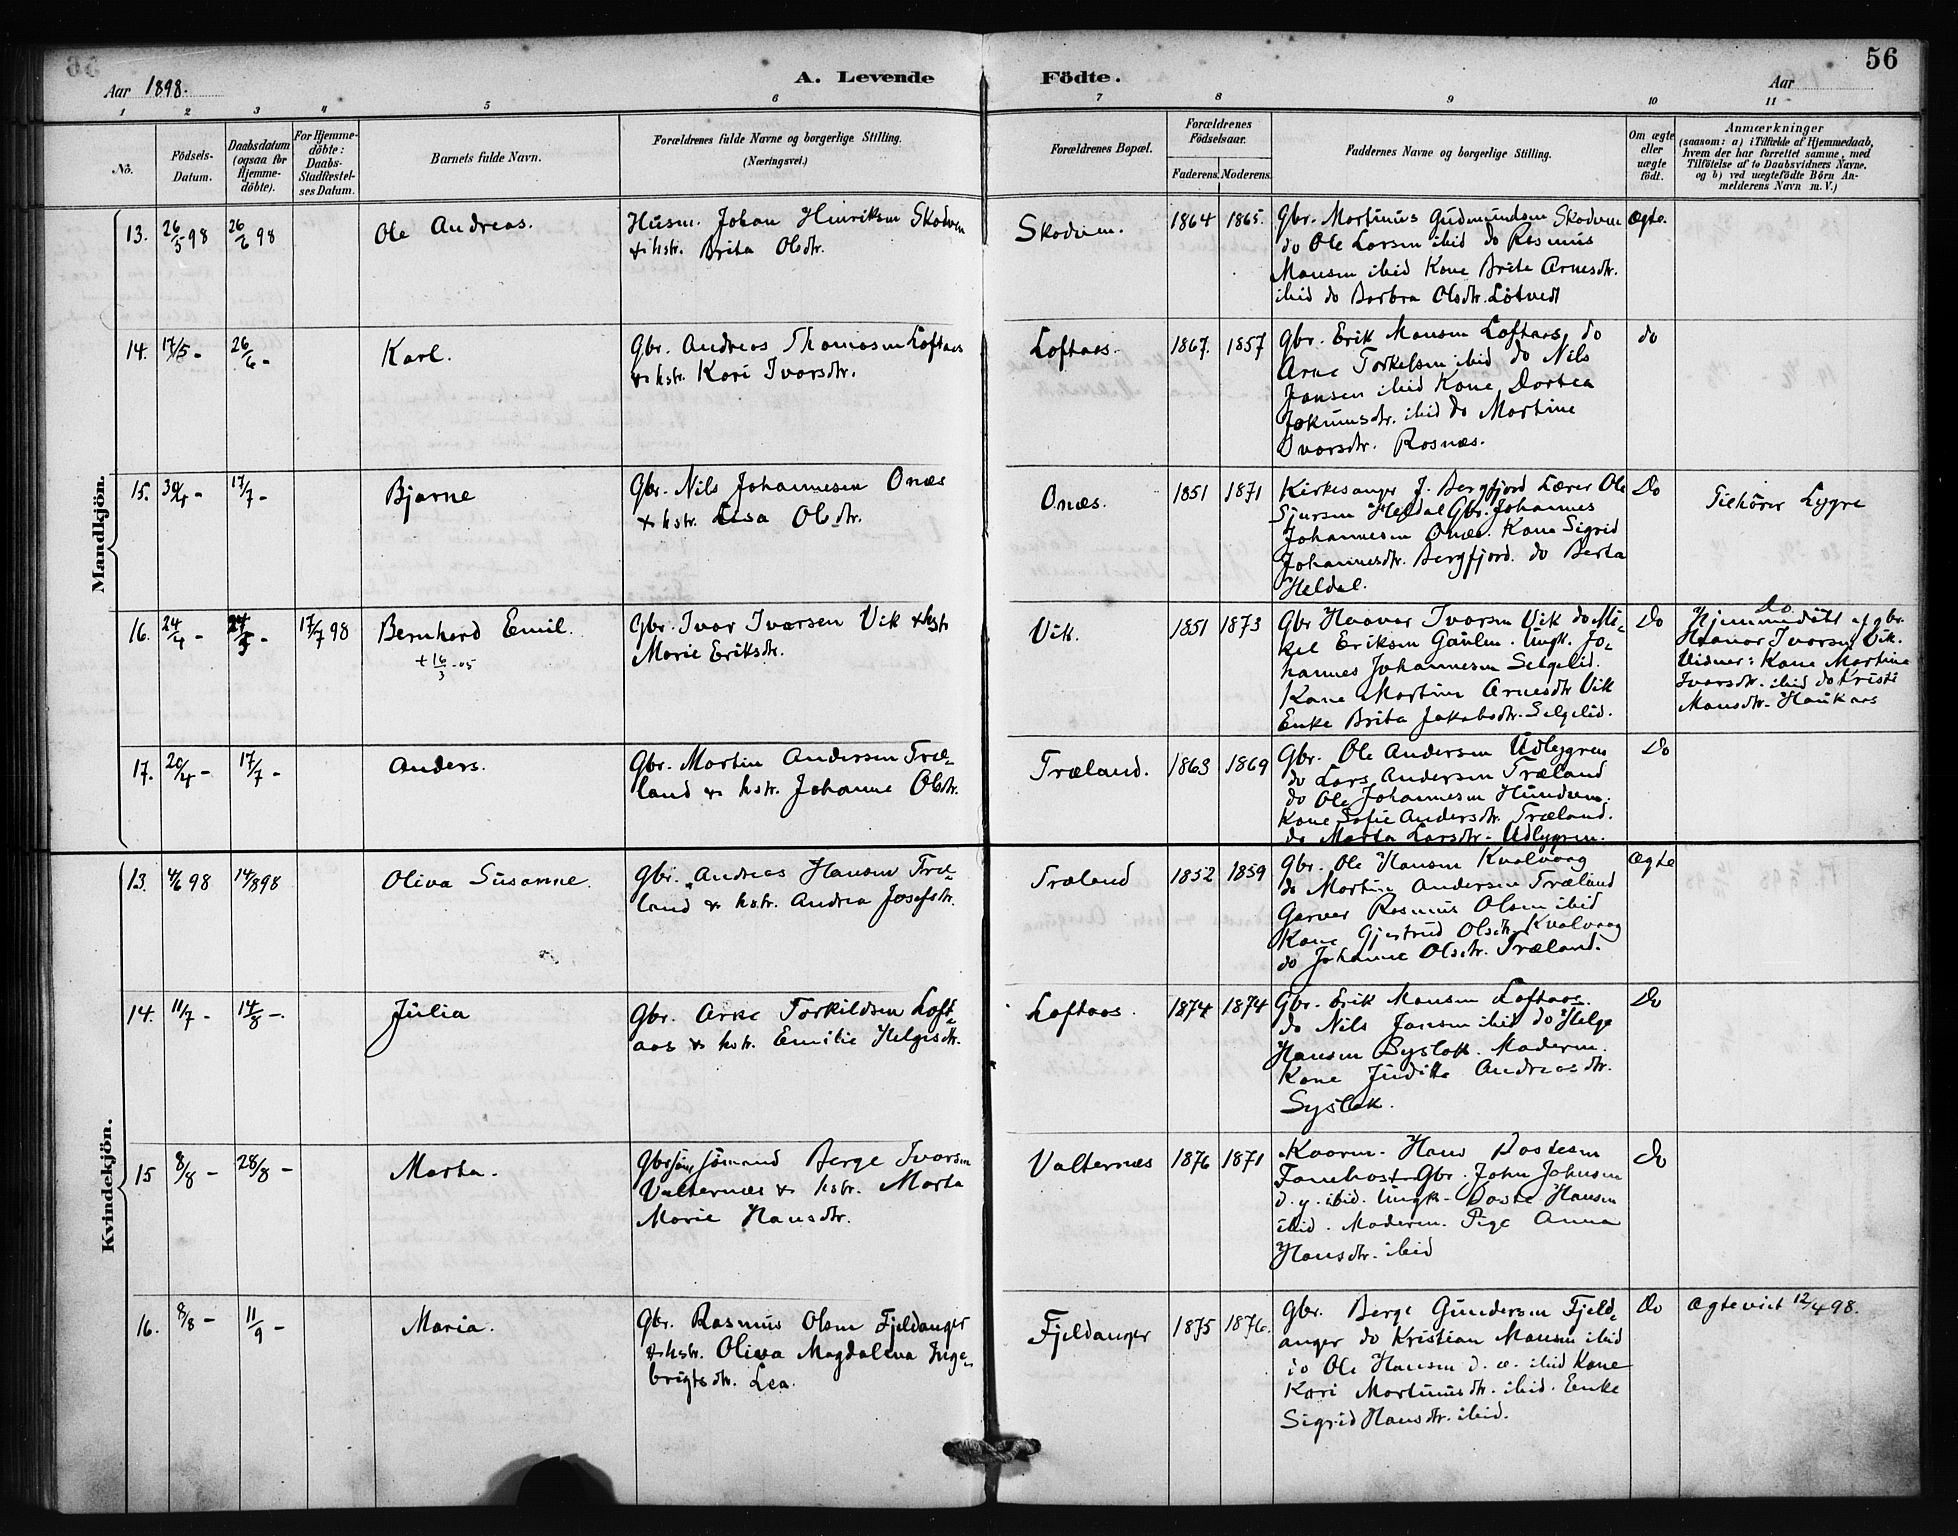 56
Aar 1898.
A. Levende Födte.
Aar
1 2 3 4 5 6 7 8 9 10 11
No.
Födsels-Datum.
Daabsdatum (ogsaa for Hjemme-döbte).
For Hjemme-döbte: Daabs-Stadfæstel-ses Datum.
Barnets fulde Navn.
Forældrenes fulde Navne og borgerlige Stilling. (Næringsvei.)
Forældrenes Bopæl.
Forældrenes Födselsaar.
Faderens. Moderens.
Faddernes Navne og borgerlige Stilling.
Om ægte eller uægte födt.
Anmærkninger
(saasom: a) i Tilfælde af Hjemmedaab,
hvem der har forrettet samme, med
Tilföielse af to Daabsvidners Navne,
og b) ved uægtefödte Börn An-
melderens Navn m. V.)
Mandkjön.
13. 26/5 98 26/6 98 Ole Andreas.
Husm. Johan Hinriksen Skodven
& hstr. Brita Olsdtr.
Skodven. 1864 1865.
Gbr. Martinus Gudmundsen Skodven
do Ole Larsen ibid do Rasmus
Monsen ibid Kone Brite Arnesdtr.
ibid do Barbra Olsdtr. Lötvedt
Ægte.
14. 17/5 - 26/6 - Karl.
Gbr. Andreas Thomasen Loftaas
& hstr. Kari Ivarsdtr.
Loftaas. 1867. 1857
Gbr. Erik Monsen Loftaas, do
Arne Torkelsen ibid do Nils
Jansen ibid Kone Dortea
Jokumsdtr. ibid do Martine
Ivarsdtr. Rosnæs.
do
15. 30/4 - 17/7 - Bjarne
Gbr. Nils Johannesen Onæs
& hstr. Lisa Olsdtr.
Onæs. 1851 1871
Kirkesanger J. Bergfjord Lærer Ole
Sjursen Heldal Gbr. Johannes
Johannesen Onæs. Kone Sigrid
Johannesdtr. Bergfjord. do Berta
Heldal.
Do
Tilhörer Lygre
16. 24/4 - 24/5 - 17/7 98 Bernhard Emil.
+ 16/3 -05
Gbr. Ivar Ivarsen Vik & hstr
Marie Eriksdtr.
Vik. 1851 1873
Gbr Haavar Ivarsen Vik do Mi-
kel Eriksen Gåulen. Ungk. Jo-
hannes Johannesen Selgelid.
Kone Martine Arnesdtr Vik
Enke Brita Jakobsdtr. Selgelid.
Do
Do
Hjemmedöbt af gbr.
Haavar Ivarsen Vik.
Vidner: Kone Martine
Ivarsdtr. ibid do Kristi
Monsdtr. Haukaas
17. 20/4 - 17/7 - Anders.
Gbr. Martin Andersen Træ-
land & hstr. Johanne Olsdtr.
Træland. 1863 1869
Gbr. Ole Andersen Udlygren
do Lars Andersen Træland
do Ole Johannesen Hundven.
Kone Sofie Andersdtr. Træland.
do Marta Larsdtr. Udlygren.
Do
Kvindekjön.
13. 4/6 98 14/8 98 Oliva Susanne.
Gbr. Andreas Hansen Træ-
land & hstr. Andrea Josefsdtr.
Træland 1852 1859
Gbr. Ole Hansen Kvalvaag
do Martin Andersen Træland
Garver Rasmus Olsen ibid
Kone Gjertrud Olsdtr. Kvalvaag
do Johanne Olsdtr. Træland.
Ægte
14. 11/7 - 14/8 -. Julia
Gbr. Arne Torkildsen Loft-
aas & hstr. Emilie Helgesdtr.
Loftaas. 1874 1874
Gbr. Erik Monsen Loftaas.
do Nils Jansen ibid do Helge
Hansen Syslak. Moderen.
Kone Juditte Andreasdtr.
Syslak.
Do
15 8/8 - 28/8 - Marta.
Gbrsöns sömand Berge Ivarsen
Valternæs & hstr. Marta
Marie Hansdtr.
Valternæs 1876 1871
Kaarm. Hans Dostesen
Fonehost Gbr. John Johnsen
d. y. ibid. Ungk. Doste Hansen
ibid. Moderen. Pige Anna
Hansdtr. ibid
do
16. 8/8 - 11/9 - Maria.
Gbr. Rasmus Olsen Fjeldanger
& hstr. Oliva Magdalena Inge-
brigtsdtr. Lea.
Fjeldanger 1875 1876.
Gbr. Berge Gundersen Fjeld-
anger do Kristian Monsen ibid
do Ole Hansen d. æ. ibid Kone
Kari Martinusdtr. ibid. Enke
Sigrid Hansdtr. ibid.
do
Ægteviet 12/4 98.